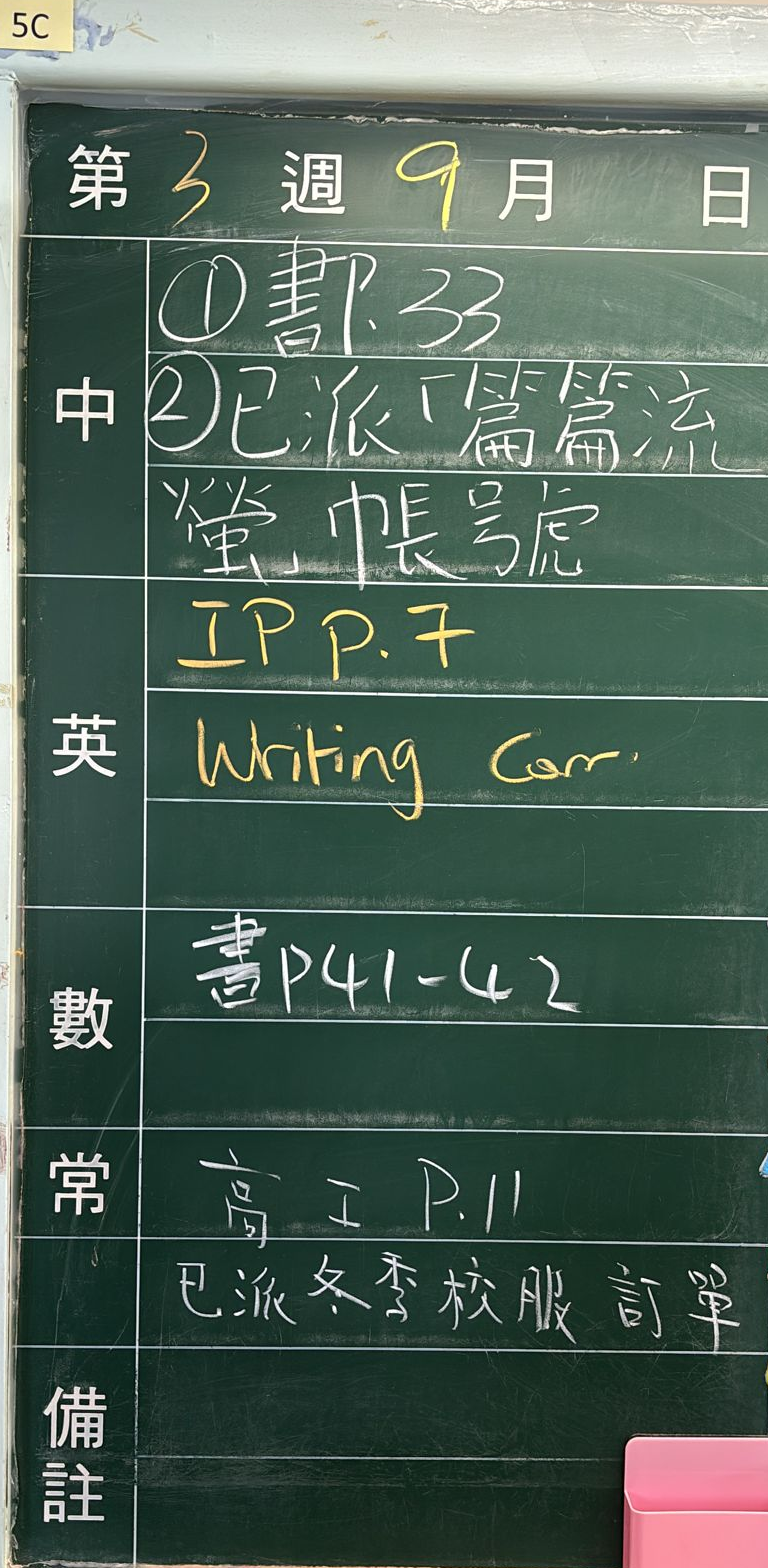 5C
第 3 週 9 月 日
中
① 書P.33
② 已派「篇篇流
螢」帳號
英
IP P.7
Writing Corr.
數
書P41-42
常
高工 P.11
已派冬季校服訂單
備註